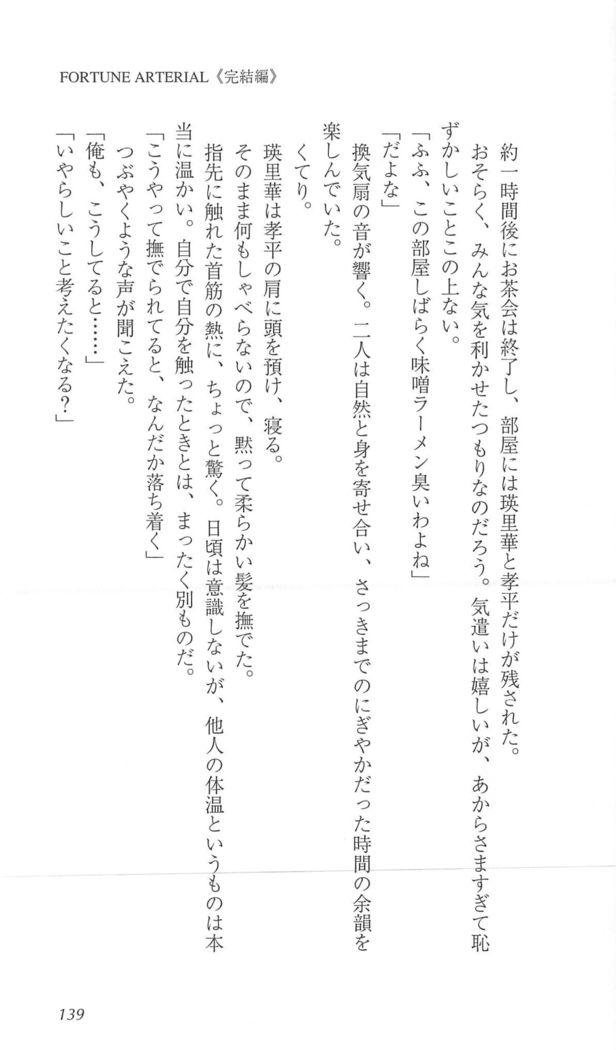 FORTUNE ARTERIAL《完結編》
約一時間後にお茶会は終了し、部屋には瑛里華と孝平だけが残された。
おそらく、みんな気を利かせたつもりなのだろう。気遣いは嬉しいが、あからさますぎて恥
ずかしいことこの上ない。
「ふふ、この部屋しばらく味噌ラーメン臭いわよね」
「だよな」
換気扇の音が響く。二人は自然と身を寄せ合い、さっきまでのにぎやかだった時間の余韻を
楽しんでいた。
くてり。
瑛里華は孝平の肩に頭を預け、寝る。
そのまま何もしゃべらないので、黙って柔らかい髪を撫でた。
指先に触れた首筋の熱に、ちょっと驚く。日頃は意識しないが、他人の体温というものは本
当に温かい。自分で自分を触ったときとは、まったく別ものだ。
「こうやって撫でられてると、なんだか落ち着く」
つぶやくような声が聞こえた。
「俺も、こうしてると……」
「いやらしいこと考えたくなる？」
139